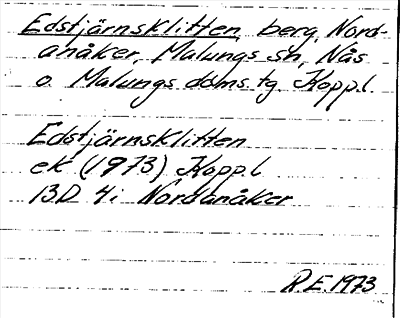 Edstjärnsklitten, berg, Nord-
anåker, Malungs sn, Nås
o. Malungs doms.tg. Kopp.l.
Edstjärnsklitten
ek (1973) Kopp.l
13D 4i Nordanåker
R.E. 1973